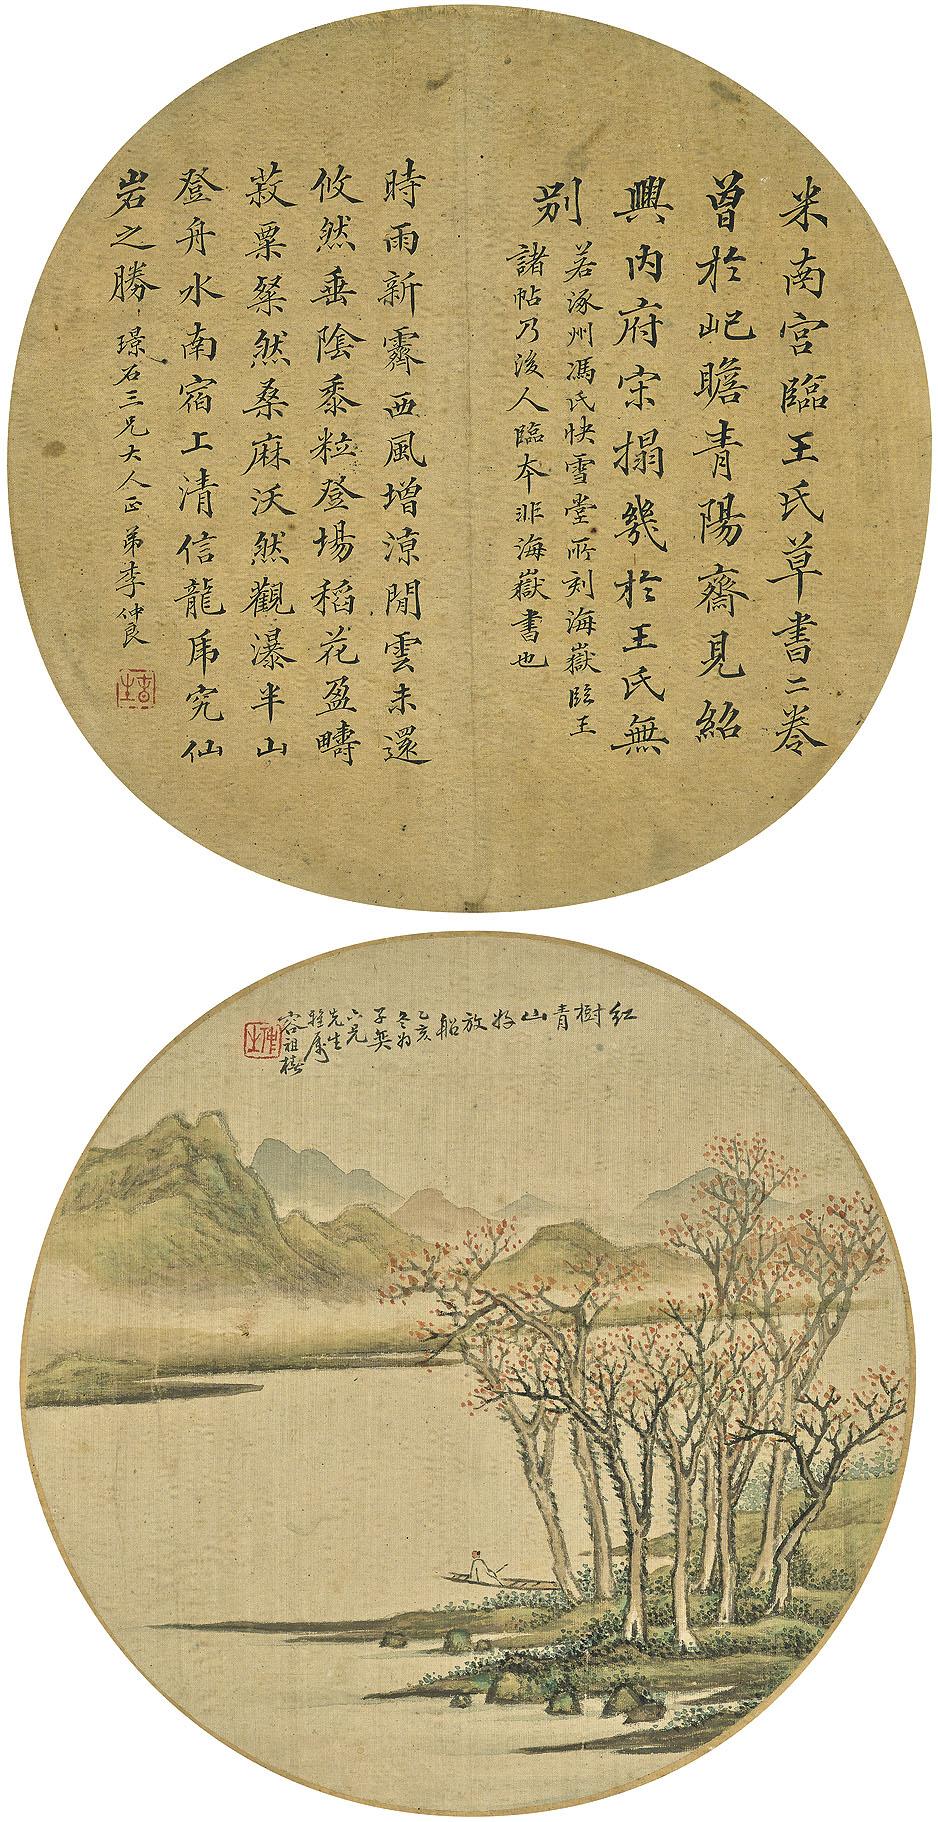 米南宮臨王氏草書二卷
曾於屺瞻青陽齋見紹
興內府宋搨幾於王氏無
別
若涿州馮氏快雪堂所刻海嶽臨王
諸帖乃後人臨本非海嶽書也
時雨新霽西風增涼閒雲未還
攸然垂陰黍粒登場稻花盈疇
菽粟粲然桑麻沃然觀瀑半山
登舟水南宿上清信龍虎究仙
岩之勝
璟石三兄大人正弟李仲良
紅樹青山好放船
乙亥
冬為
子奭
六兄
先生
雅屬
容祖椿